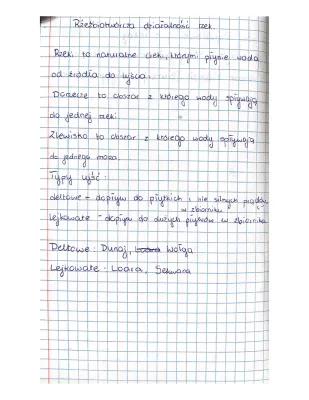 Rzeźbotwórcza działalność rzek.
Rzeki to naturalne cieki, którymi płynie woda
od źródła do ujścia.
Dorzecze to obszar z którego wody spływają
do jednej rzeki
Zlewisko to obszar z którego wody spływają
do jednego morza
Typy ujść:
deltowe - dopływ do płytkich i nie silnych prądów
w zbiorniku
lejkowate - dopływ do dużych pływów w zbiorniku
Deltowe: Dunaj, Loara Wołga
Lejkowate: Loara, Sekwana